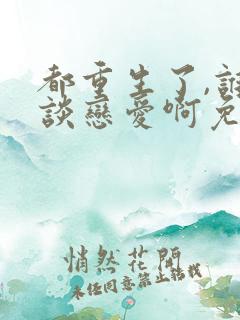 都重生了,誰
談戀愛啊免
悄然花開
未經同意禁止轉載